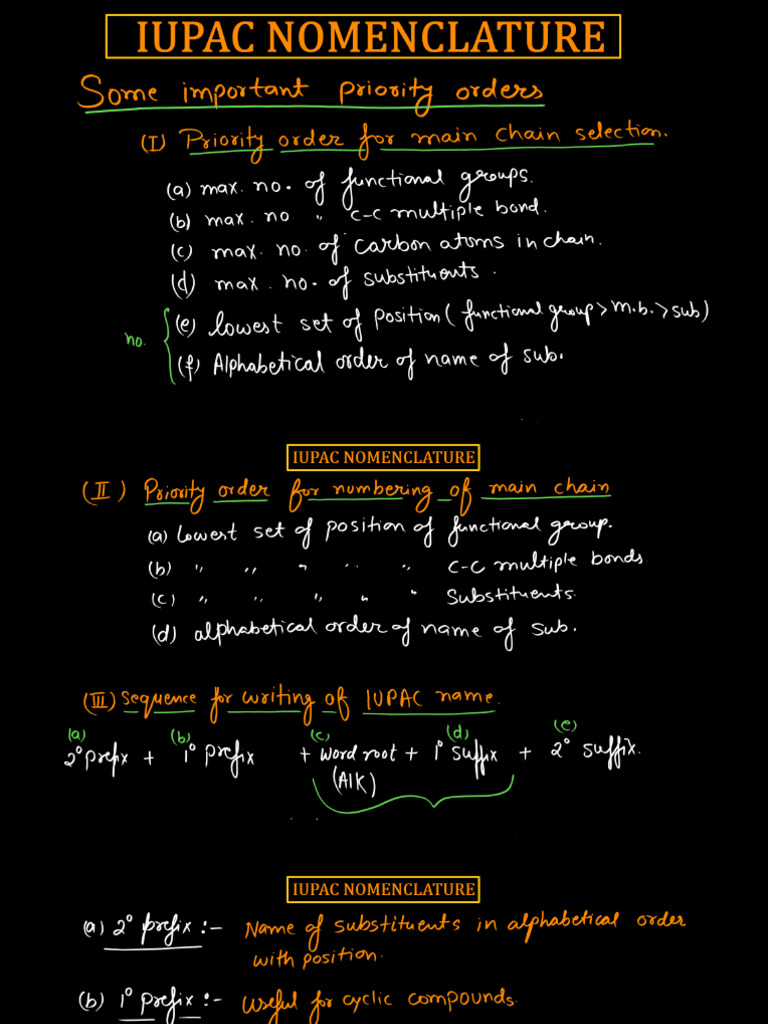 IUPAC NOMENCLATURE
Some important priority orders
(I) Priority order for main chain selection.
(a) max. no. of functional groups.
(b) max. no " C-C multiple bond.
(c) max. no. of carbon atoms in chain.
(d) max. no. of substituents.
(e) lowest set of position (functional group > m.b. > sub)
no.
(f) Alphabetical order of name of sub.
IUPAC NOMENCLATURE
(II) Priority order for numbering of main chain
(a) lowest set of position of functional group.
(b) " " " " " C-C multiple bonds
(c) " " " " " Substituents.
(d) alphabetical order of name of sub.
(III) Sequence for writing of IUPAC name.
(a) (b) (c) (d) (e)
2° prefix + 1° prefix + word root + 1° suffix + 2° suffix.
(Alk)
IUPAC NOMENCLATURE
(a) 2° prefix :- Name of substituents in alphabetical order
with position.
(b) 1° prefix :- Useful for cyclic compounds.